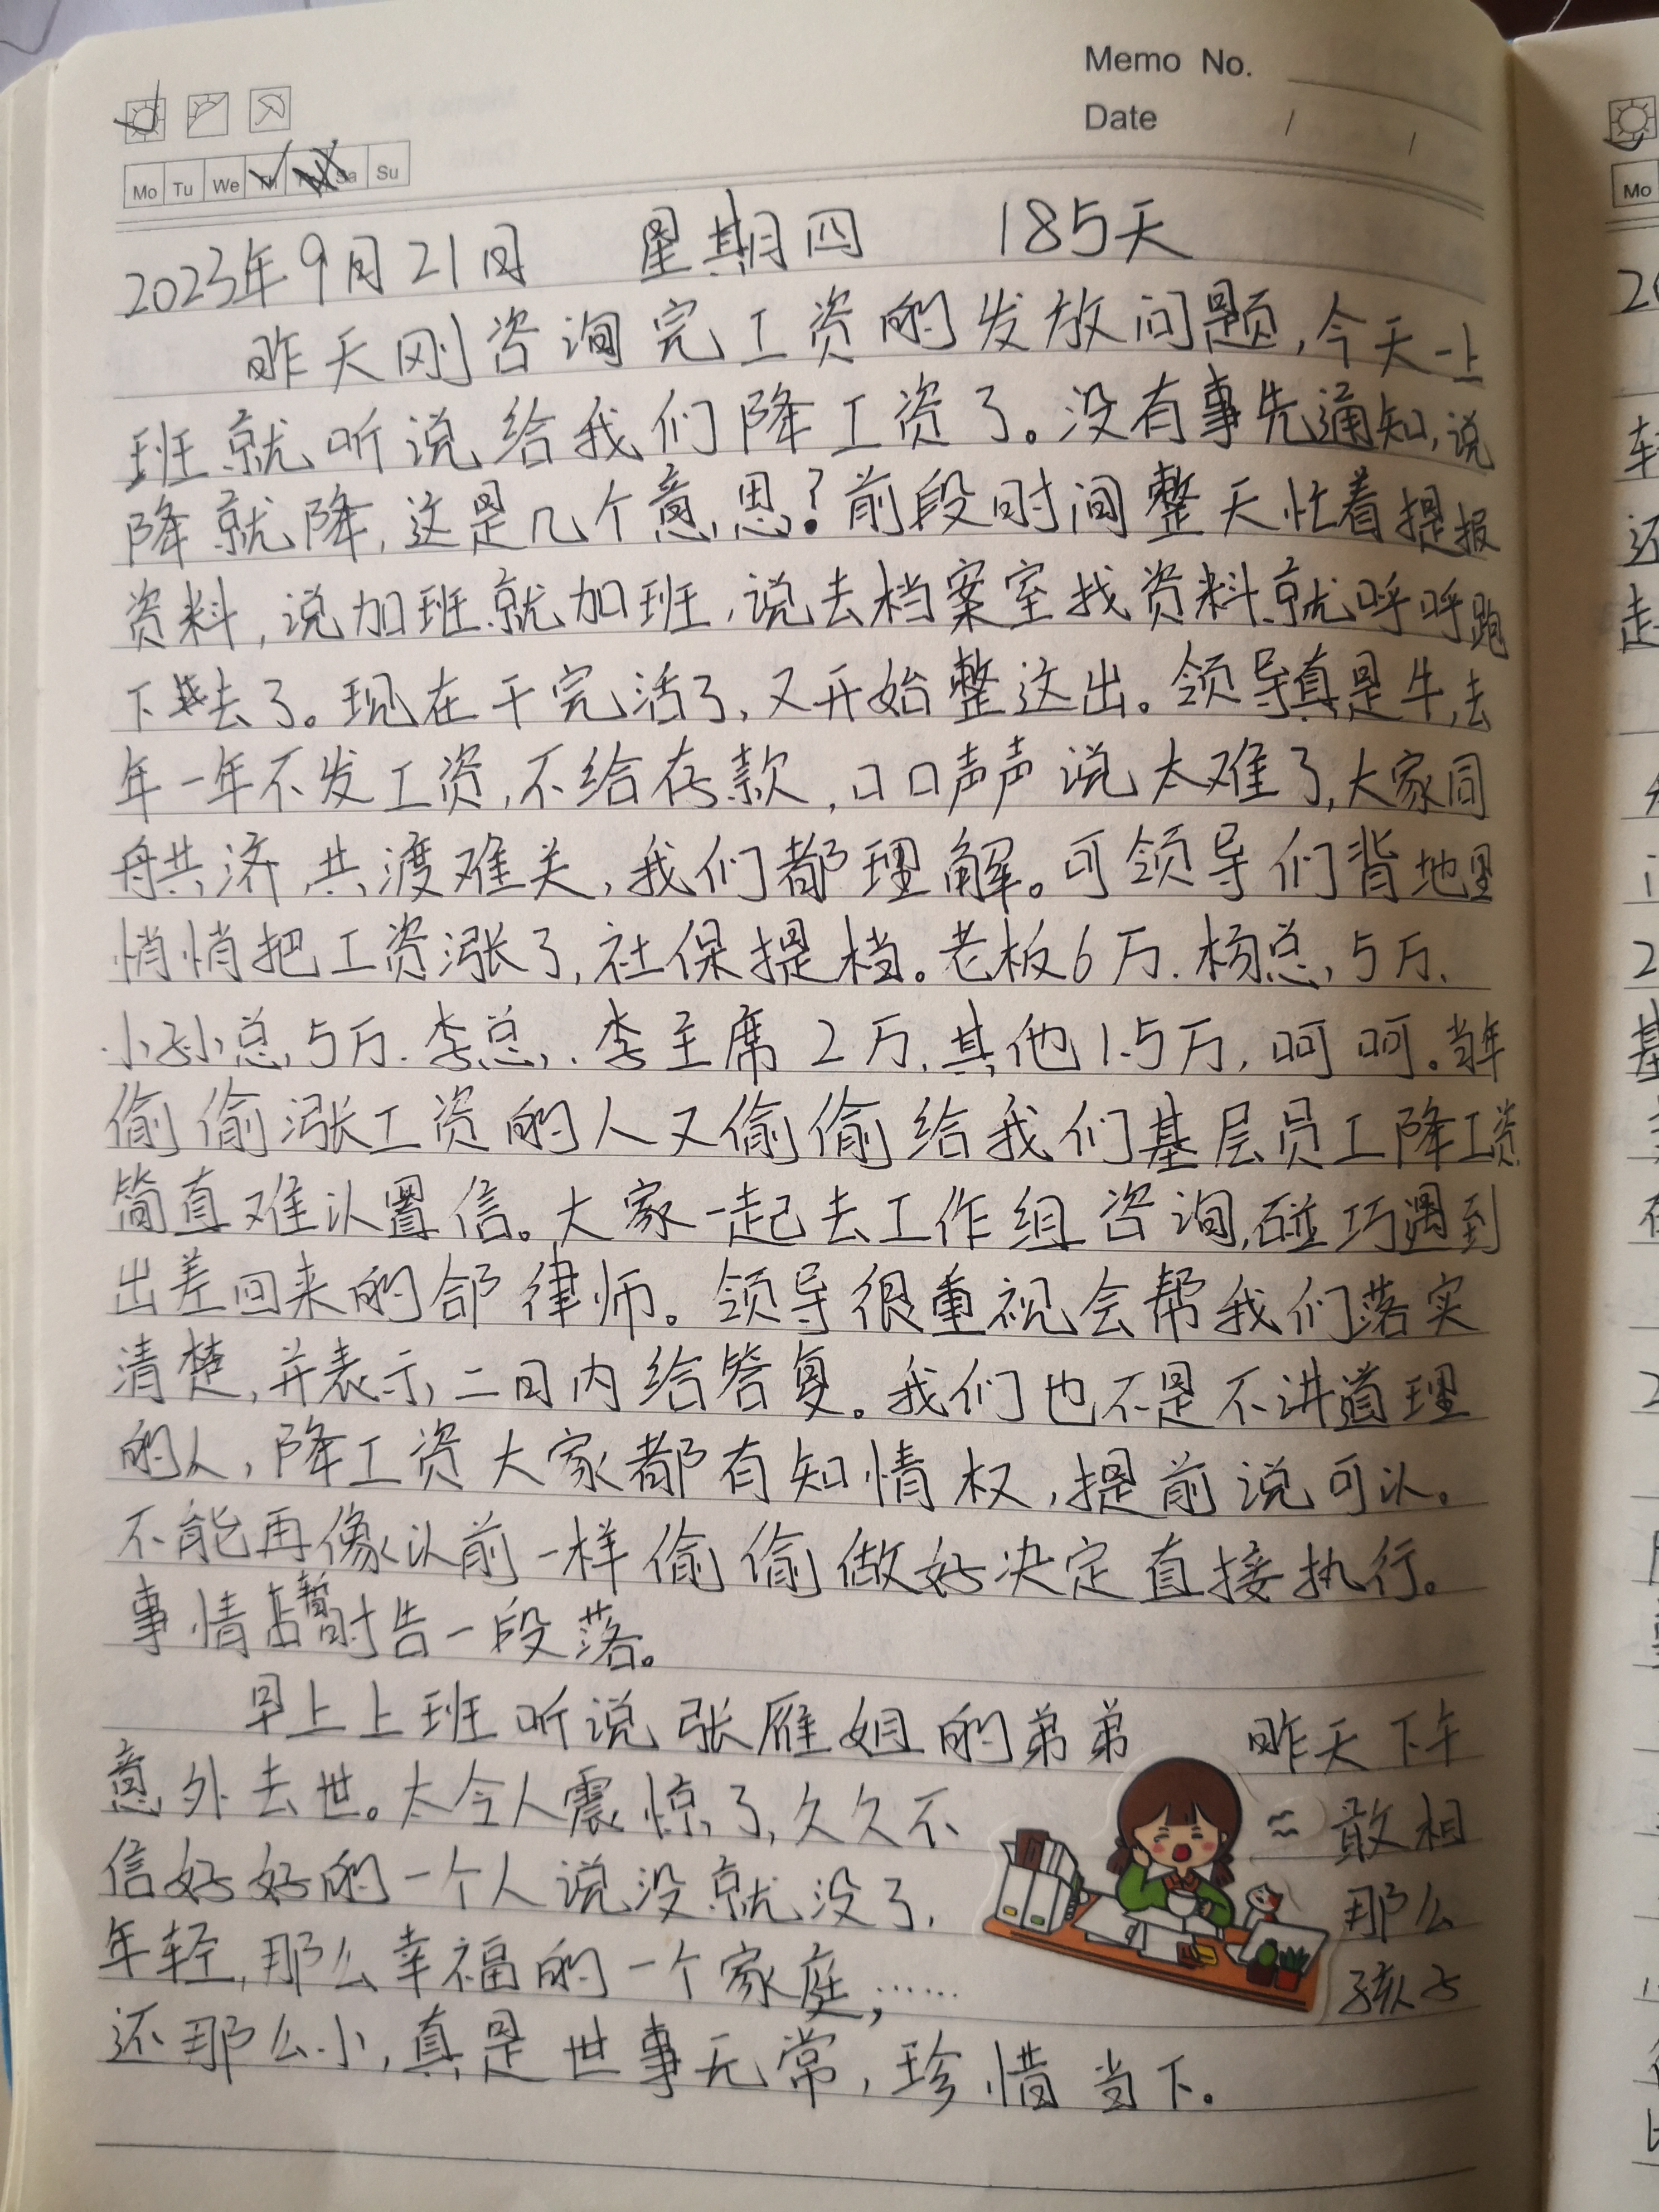 Memo No.
Date / /
Mo Tu We Th Sa Su
2023年9月21日 星期四 185天
昨天刚咨询完工资的发放问题,今天一上
班就听说给我们降工资了。没有事先通知,说
降就降,这是几个意思?前段时间整天忙着提报
资料,说加班就加班,说去档案室找资料就呼呼跑
下去了。现在干完活了,又开始整这出。领导真是牛,去
年一年不发工资,不给存款,口口声声说太难了,大家同
舟共济,共渡难关,我们都理解。可领导们背地里
悄悄把工资涨了,社保提档。老板6万.杨总,5万.
小孙总,5万.李总,.李主席2万.其他1.5万,呵呵。当年
偷偷涨工资的人又偷偷给我们基层员工降工资
简直难以置信。大家一起去工作组咨询,碰巧遇到
出差回来的郃律师。领导很重视会帮我们落实
清楚,并表示,二日内给答复。我们也不是不讲道理
的人,降工资大家都有知情权,提前说可以。
不能再像以前一样偷偷做好决定直接执行。
事情暂时告一段落。
早上上班听说张雁姐的弟弟 昨天下午
意外去世。太令人震惊了,久久不 敢相
信好好的一个人说没就没了, 那么
年轻,那么幸福的一个家庭,…… 孩子
还那么小,真是世事无常,珍惜当下。
Mo